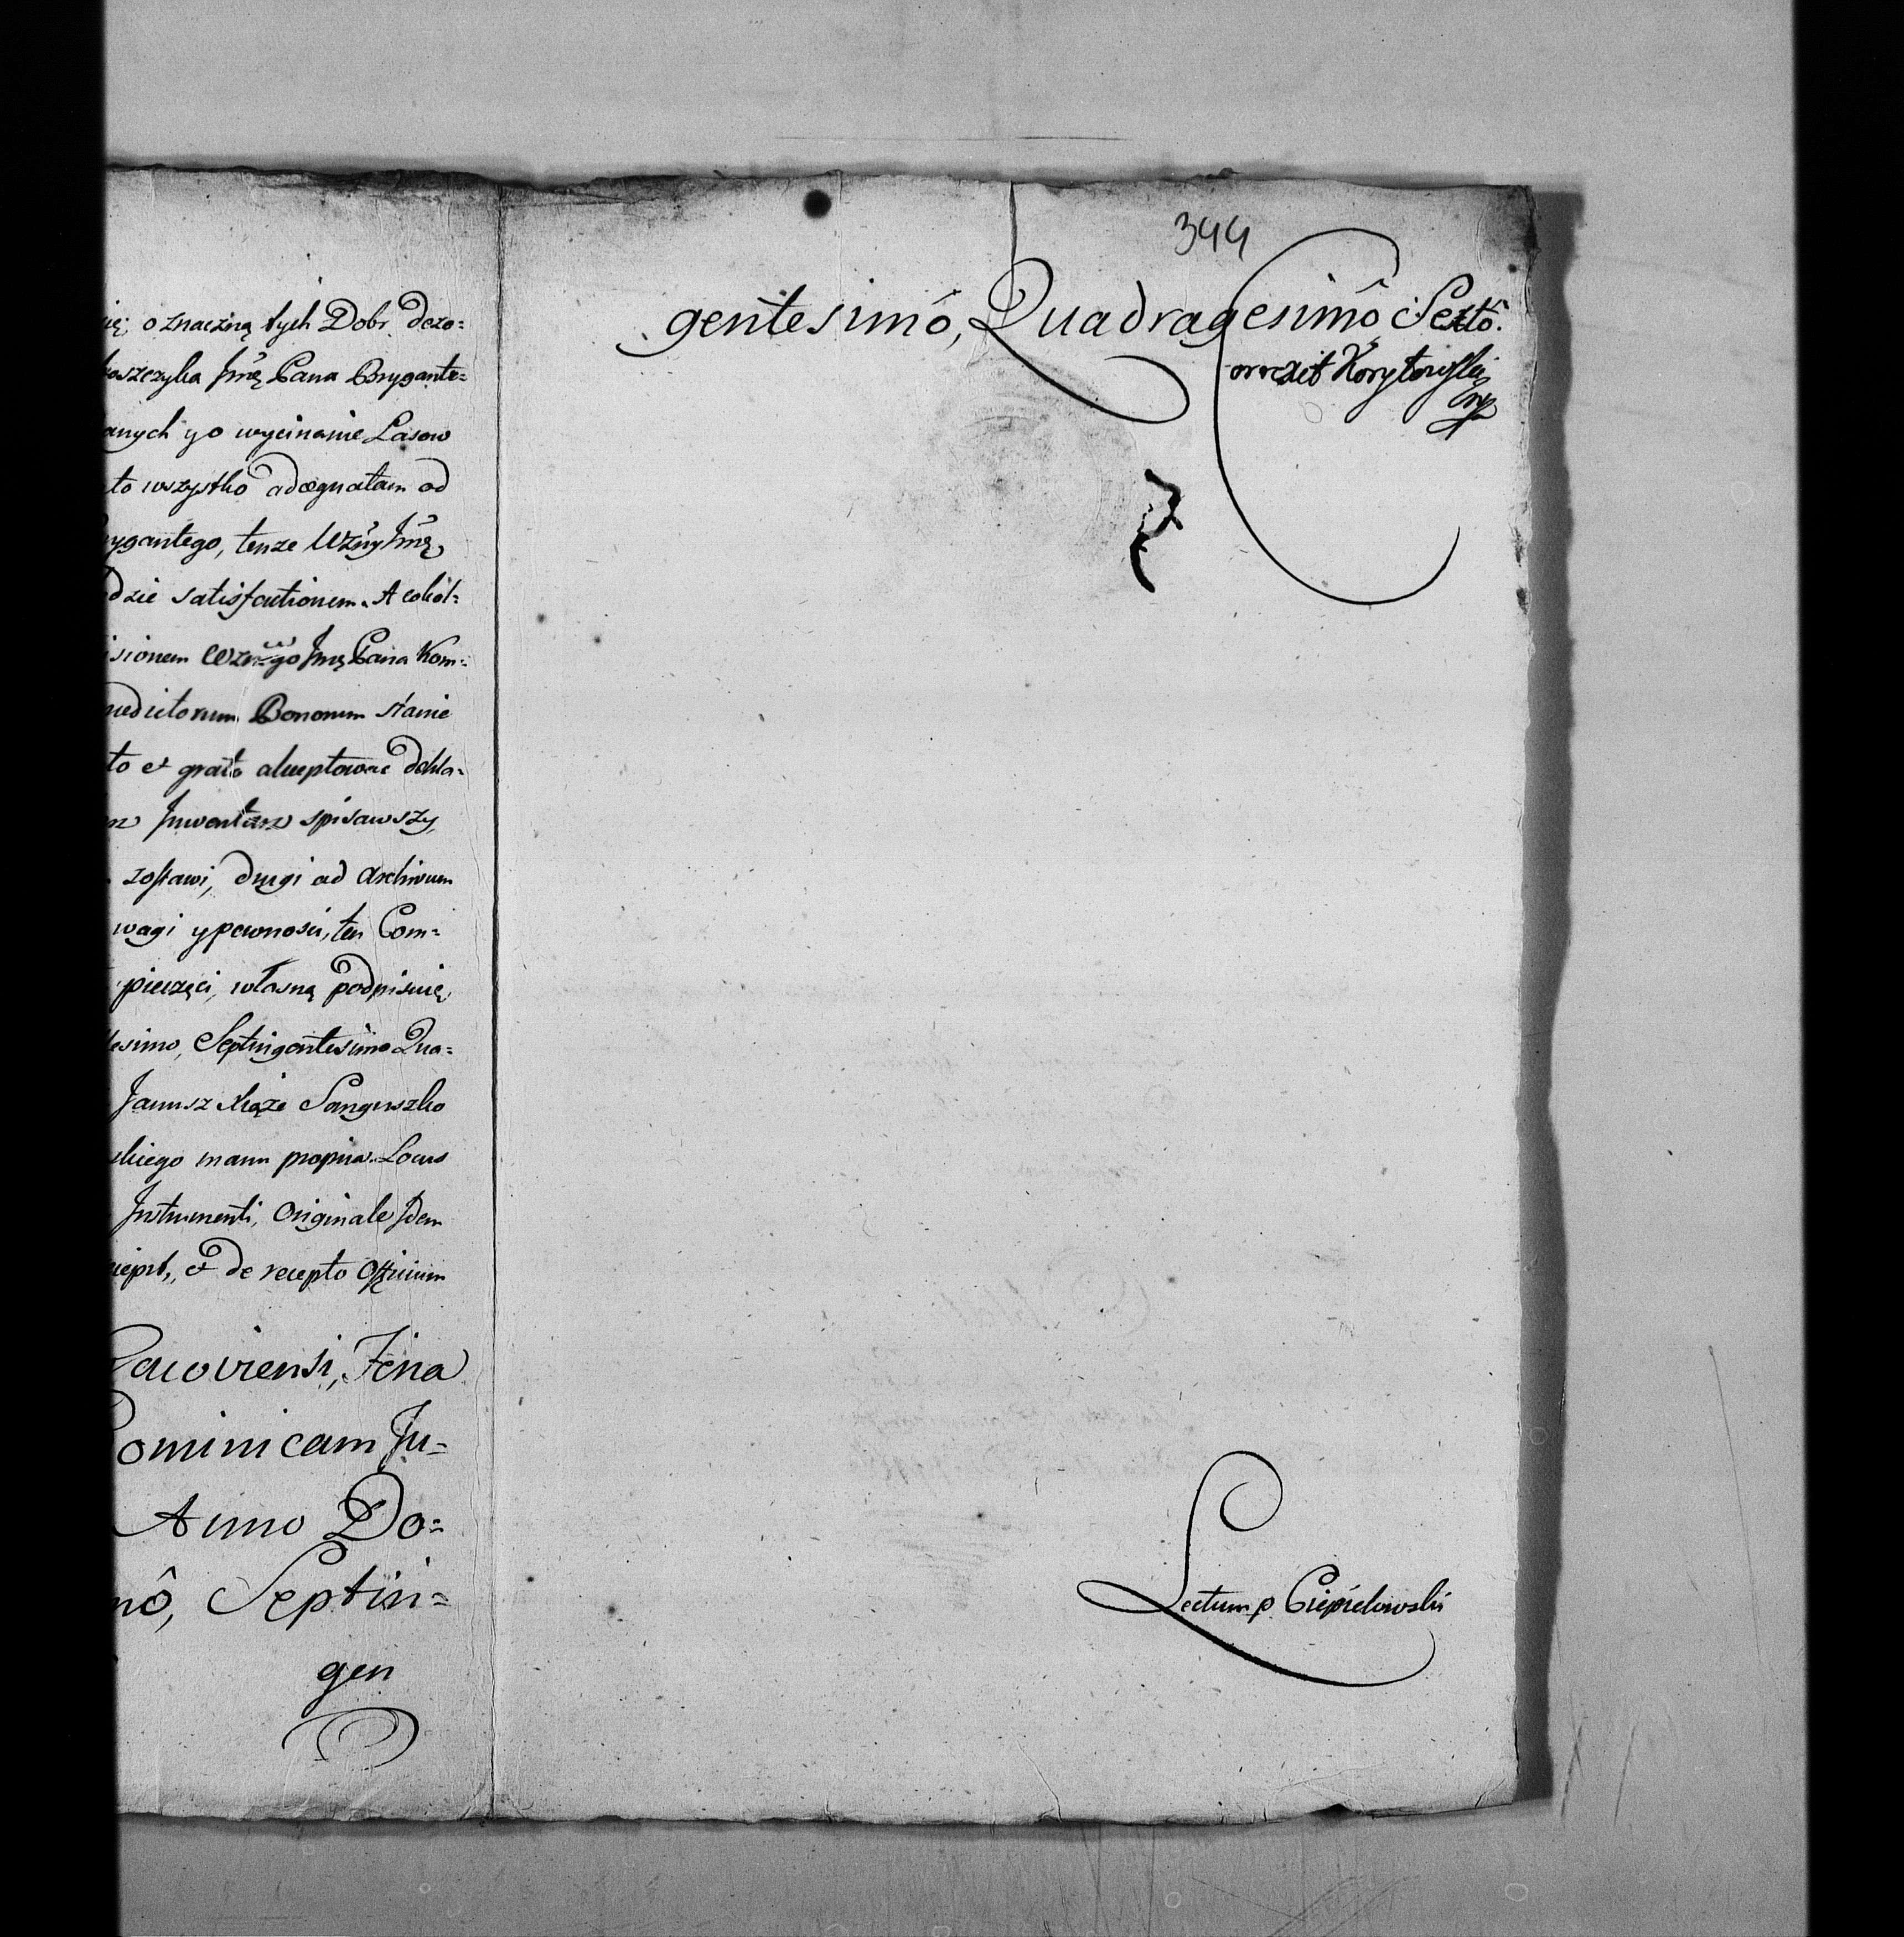 o znaczną tych Dobr dezo=
Jmę Pana Brygante=
anych y o wycinanie Lasow
to wszystko adæquatam od
rygantego, tenze Wżny Jmę
dzie satisfactionem. A cokol=
isionem Wznego Jmę Pana Kom=
nedictorum Bonorum stanie
to et grato akceptować dekla=
Inwentarz spisawszy,
zostawi, drugi ad Archivum
wagi y pewnosci, ten Com=
pieczęci, własną podpisuię
lesimo, Septingentesimo Qua=
Janusz Xiąże Sanguszko
skiego manu propria. Locus
Instrumenti, Originale Idem
et de recepto Officium
racoviensi, Feria
Dominicam Ju=
Anno Do=
mô, Septin=
gen
344
gentesimô, Quadragesimô Sextô.
Correxit Korytowski
mp
Lectum p. Ciepielowski